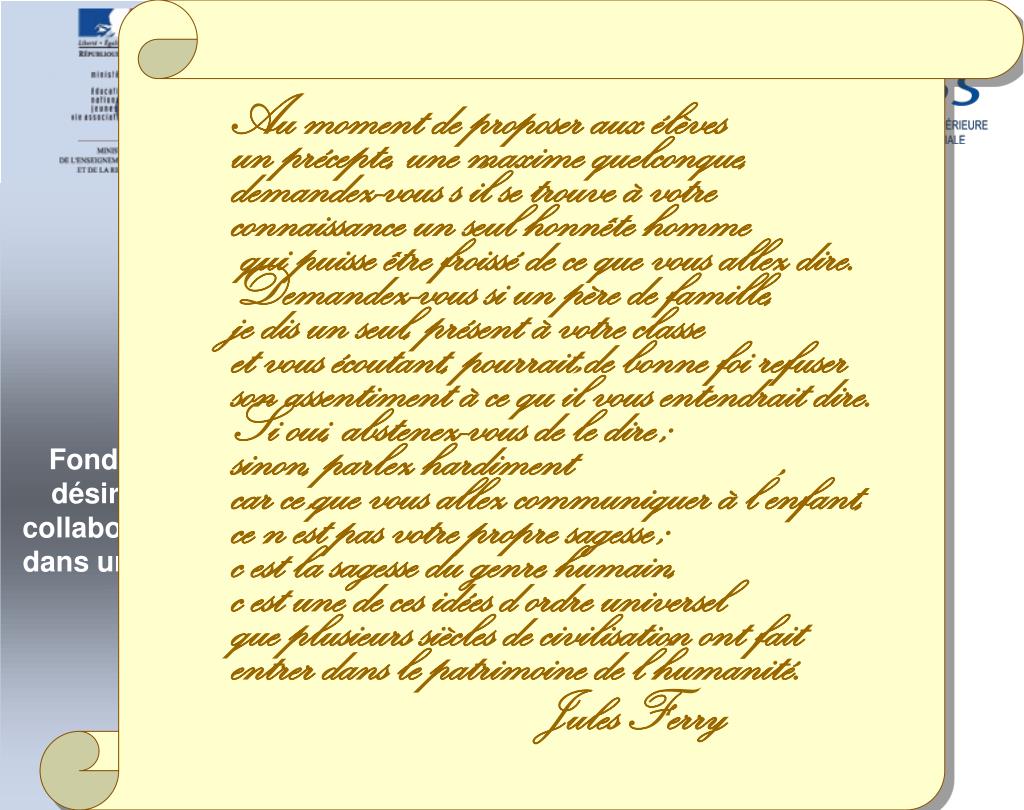 Liberté • Égal
RÉPUBLIQUE
ministè
Éducati
nation
jeunes
vie associat
MINIS
DE L'ENSEIGNEM
ET DE LA RE
ÉRIEURE
IALE
Au moment de proposer aux élèves
un précepte, une maxime quelconque,
demandez-vous s il se trouve à votre
connaissance un seul honnête homme
qui puisse être froissé de ce que vous allez dire.
Demandez-vous si un père de famille,
je dis un seul, présent à votre classe
et vous écoutant, pourrait de bonne foi refuser
son assentiment à ce qu il vous entendrait dire.
Si oui, abstenez-vous de le dire ;
sinon, parlez hardiment
car ce que vous allez communiquer à l enfant,
ce n est pas votre propre sagesse ;
c est la sagesse du genre humain,
c est une de ces idées d ordre universel
que plusieurs siècles de civilisation ont fait
entrer dans le patrimoine de l humanité.
Jules Ferry
Fond
désir
collabo
dans u